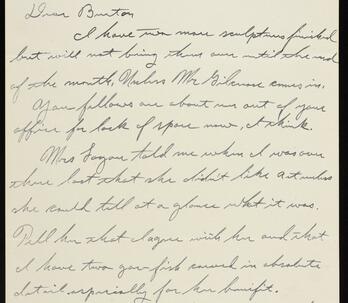 Dear Burton
I have two more sculptures finished
but will not bring them over until the end
of the month, Unless Mr Gilmore comes in.
You fellows are about run out of your
office for lack of space now, I think.
Mrs told me when I was over
there last that she didn't like Art unless
she could tell at a glance what it was.
Tell her that I agree with her and that
I have two gar fish carved in absolute
detail especially for her benefit.